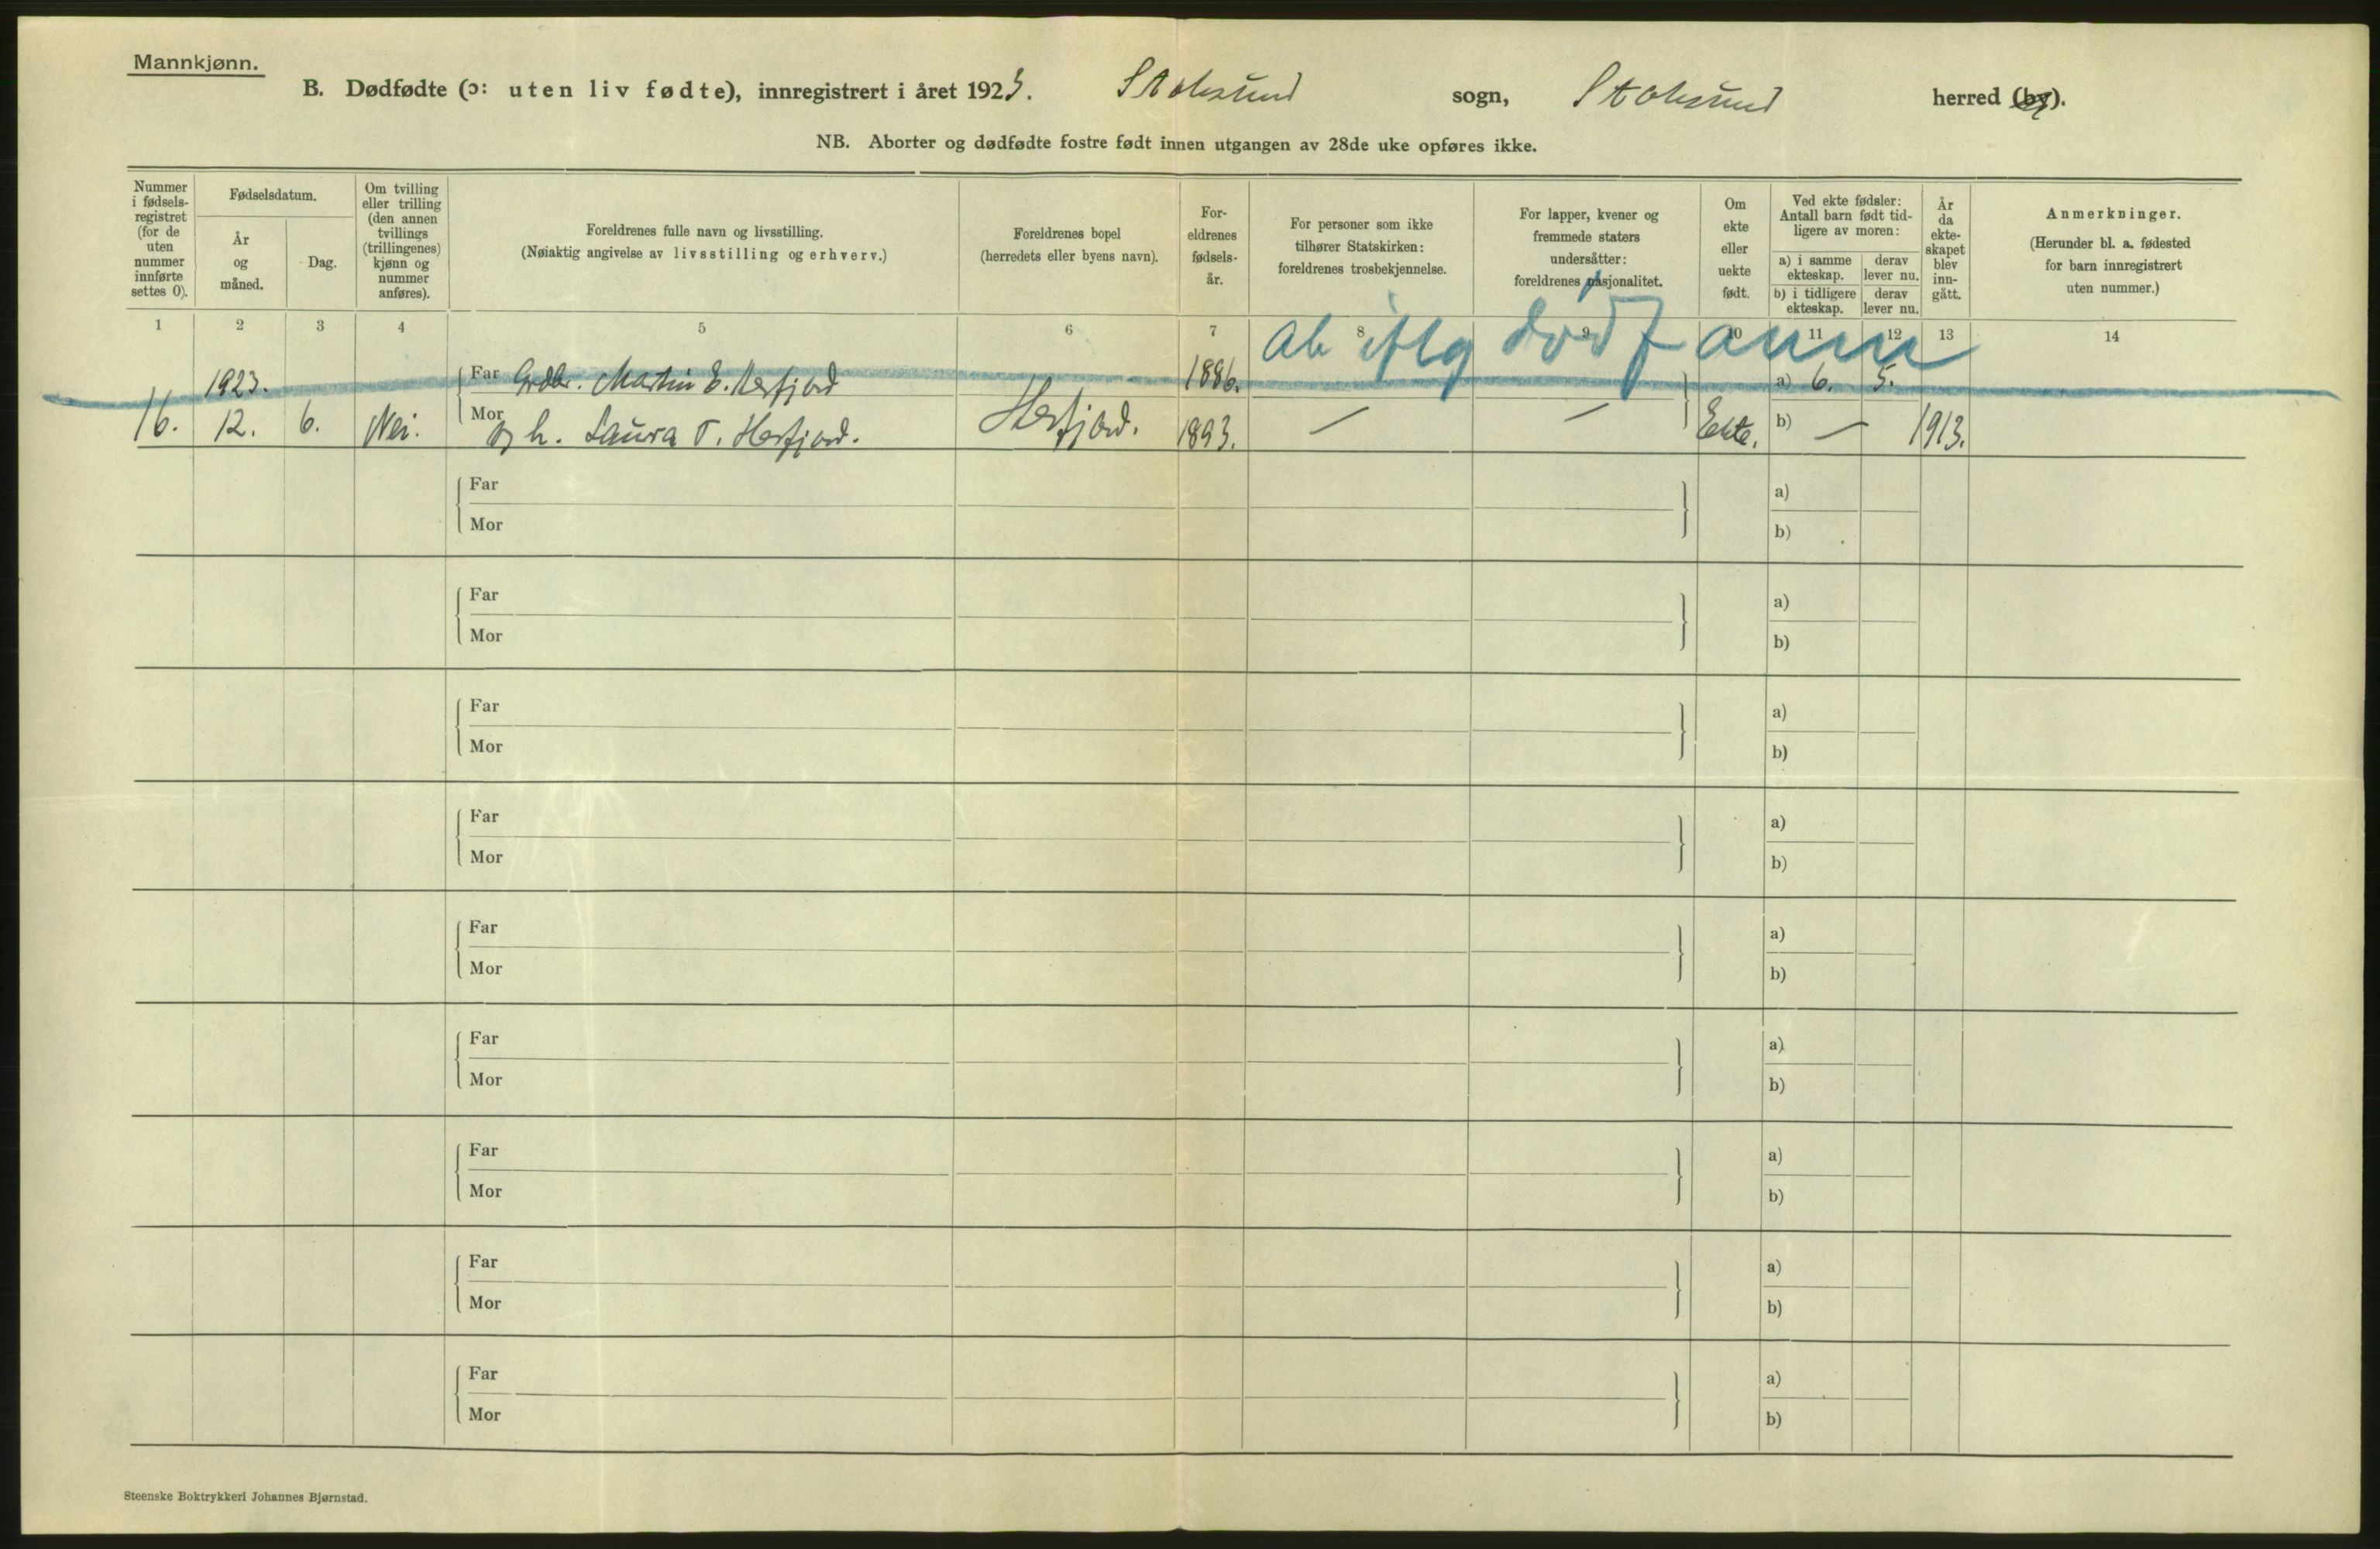 Mannkjønn.
B. Dødfødte (ɔ: uten liv fødte), innregistrert i året 1923. Stoksund sogn, Stoksund herred (by).
NB. Aborter og dødfødte fostre født innen utgangen av 28de uke opføres ikke.
Nummer i fødsels-registret (for de uten nummer innførte settes 0).
Fødselsdatum.
År og måned.
Dag.
Om tvilling eller trilling (den annen tvillings (trillingenes) kjønn og nummer anføres).
Foreldrenes fulle navn og livsstilling.
(Nøiaktig angivelse av livsstilling og erhverv.)
Foreldrenes bopel
(herredets eller byens navn).
For-eldrenes fødsels-år.
For personer som ikke tilhører Statskirken: foreldrenes trosbekjennelse.
For lapper, kvener og fremmede staters undersåtter: foreldrenes nasjonalitet.
Om ekte eller uekte født.
Ved ekte fødsler: Antall barn født tid-ligere av moren:
a) i samme ekteskap.
derav lever nu.
b) i tidligere ekteskap.
derav lever nu.
År da ekte-skapet blev inn-gått.
Anmerkninger.
(Herunder bl. a. fødested for barn innregistrert uten nummer.)
1 2 3 4 5 6 7 8 9 10 11 12 13 14
dødf anm
1923. Far Grdbr. Martin E. Herfjord 1886. a) 6. 5.
16. 12. 6. Nei. Mor og h. Laura T. Herfjord. Herfjord. 1893. — — Ekte. b) — 1913.
Far a)
Mor b)
Far a)
Mor b)
Far a)
Mor b)
Far a)
Mor b)
Far a)
Mor b)
Far a)
Mor b)
Far a)
Mor b)
Far a)
Mor b)
Far a)
Mor b)
Steenske Boktrykkeri Johannes Bjørnstad.